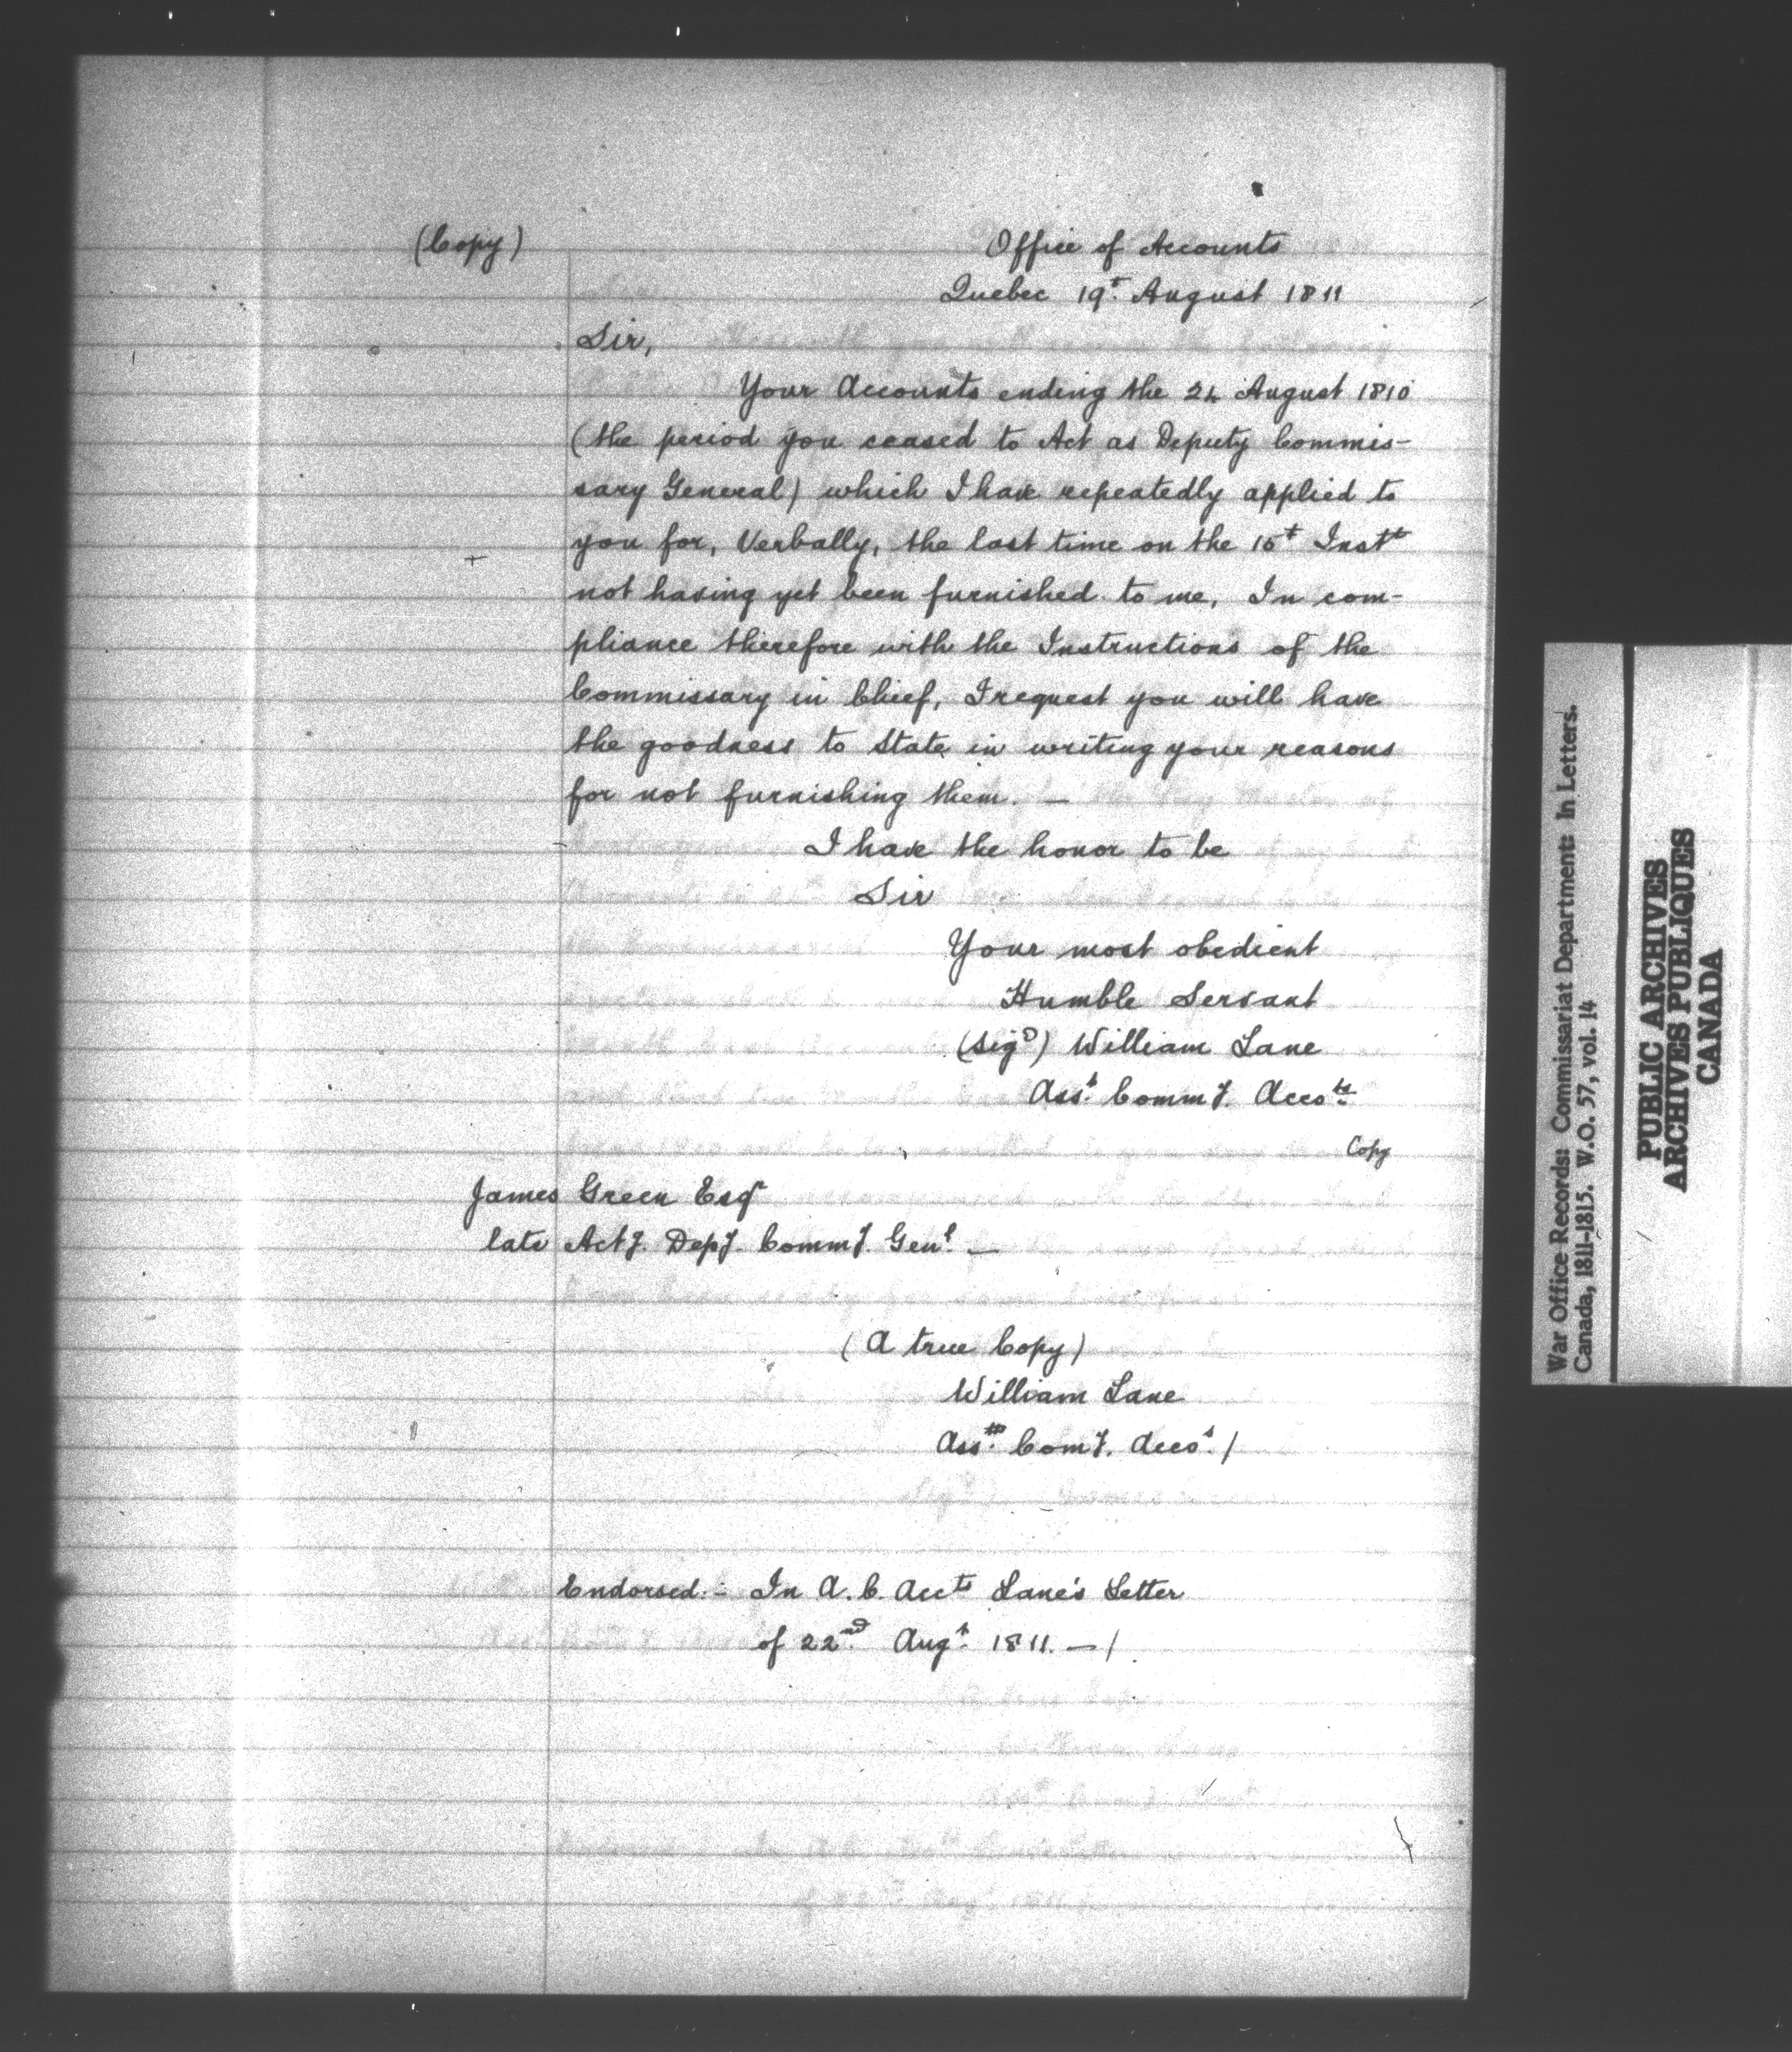 (Copy)
Office of Accounts
Quebec 19t. August 1811
Sir,
Your Accounts ending the 24 August 1810
(the period you ceased to Act as Deputy Commis-
sary General) which I have repeatedly applied to
you for, Verbally, the last time on the 15t Instt
not having yet been furnished to me, In com-
pliance therefore with the Instructions of the
Commissary in Chief, I request you will have
the goodness to State in writing your reasons
for not furnishing them. —
I have the honor to be
Sir
Your most obedient
Humble Servant
(Sigd) William Lane
Asst. Commy. Accots.
Copy
James Green Esqr
late Acty. Depy. Commy. Genl. —
(A true Copy)
William Lane
Asst. Comy. Accots. /
Endorsed:- In A. C. Accts Lane's Letter
of 22nd. Augt. 1811. — /
War Office Records: Commissariat Department: In Letters.
Canada, 1811-1815. W.O. 57, vol. 14
PUBLIC ARCHIVES
ARCHIVES PUBLIQUES
CANADA